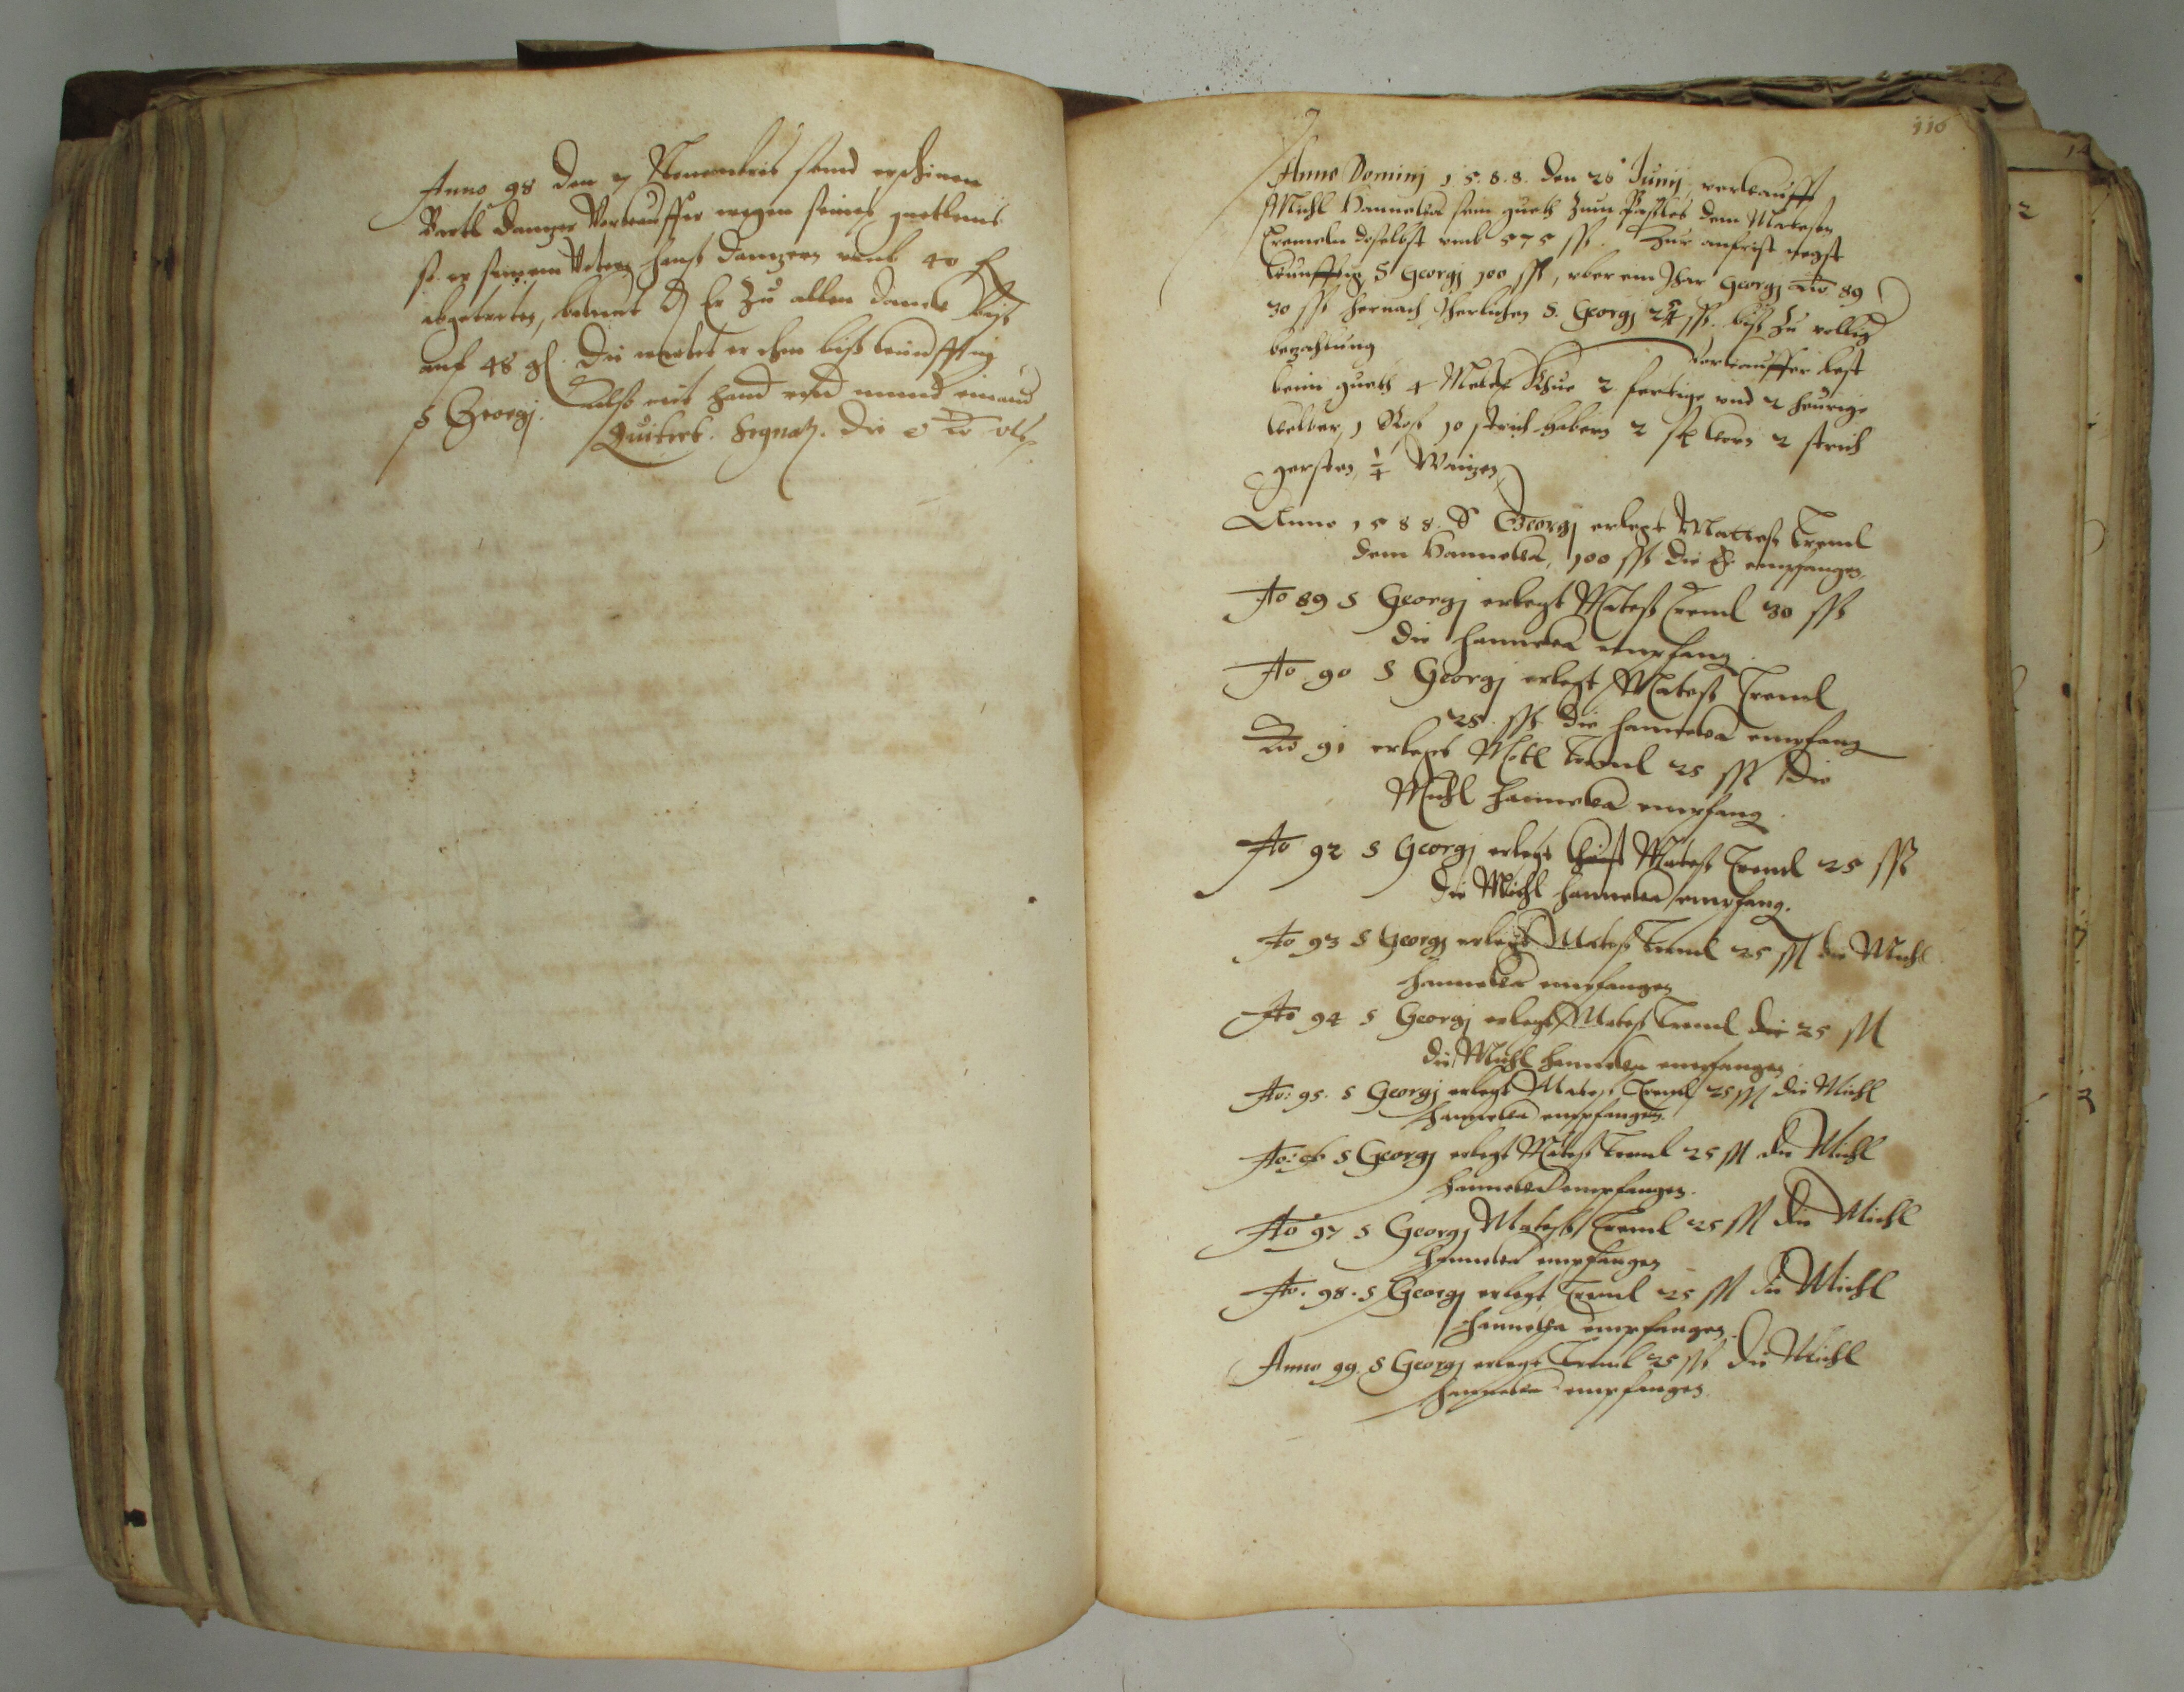 Anno 98 den 7 Novembris seind erschinen
Bartl Danzer Verkauffer wegen seines guetlens
so er seinem Vetern Hanß Danzern umb 40
abgetreten, bekent Er zu allen danck biß
auf 48 gl. Die wartet er ihm biß kunfftig
S Georgj. mit hand und mund einand
Quitirt. Die
116
Anno Dominj 1.5.8.8. den 28 Junij verkaufft
Michl Hanneka sein guett zum dem Matesen
Tremeln doselbst umb 575 ß. Zur anfrist negst
kunfftig S Georgj 100 ß, uber ein Jhar Georgj Ao 89
30 ß hernach Jherlichen S. Georgj 25 ß. biß zu vollig
bezahlung
Verkauffer lest
beim guett 4 Melck Khue 2 fertige und 2 heurige
kelber, 1 Roß 10 strich habern 2 st korn 2 strich
gersten, ¼ Waizen
Anno 1588. S Georgj erlegt Mattes Treml
dem Hanneka, 100 ß die Er empfangen,
Ao 89 S Georgj erlegt Mateß Treml 30 ß
die Hanneka empfang
Ao 90 S Georgj erlegt Mateß Treml
25. ß die Hanneka empfang
Ao 91 erlegt Motl Treml 25 ß die
Michl Hanneka empfang.
Ao 92 S Georgj erlegt Mateß Treml 25 ß
die Michl Hanneka empfang.
Ao 93 S Georgj erlegt Mateß Treml 25 ß die Michl
Hanneka empfangen
Ao 94 S Georgj erlegt Mateß Treml die 25 ß
die Michl Hanneka empfangen
Ao: 95. S Georgj erlegt Mateß Treml 25 ß die Michl
Hanneka empfangen.
Ao: 96 S Georgj erlegt Mateß Treml 25 ß die Michl
Hanneka empfangen.
Ao 97 S Georgj Mateß Treml 25 ß die Michl
Hanneka empfangen
Ao. 98. S Georgj erlegt Treml 25 ß die Michl
Hanneka empfangen.
Anno 99. S Georgj erlegt Treml 25 ß die Michl
Hanneka empfangen